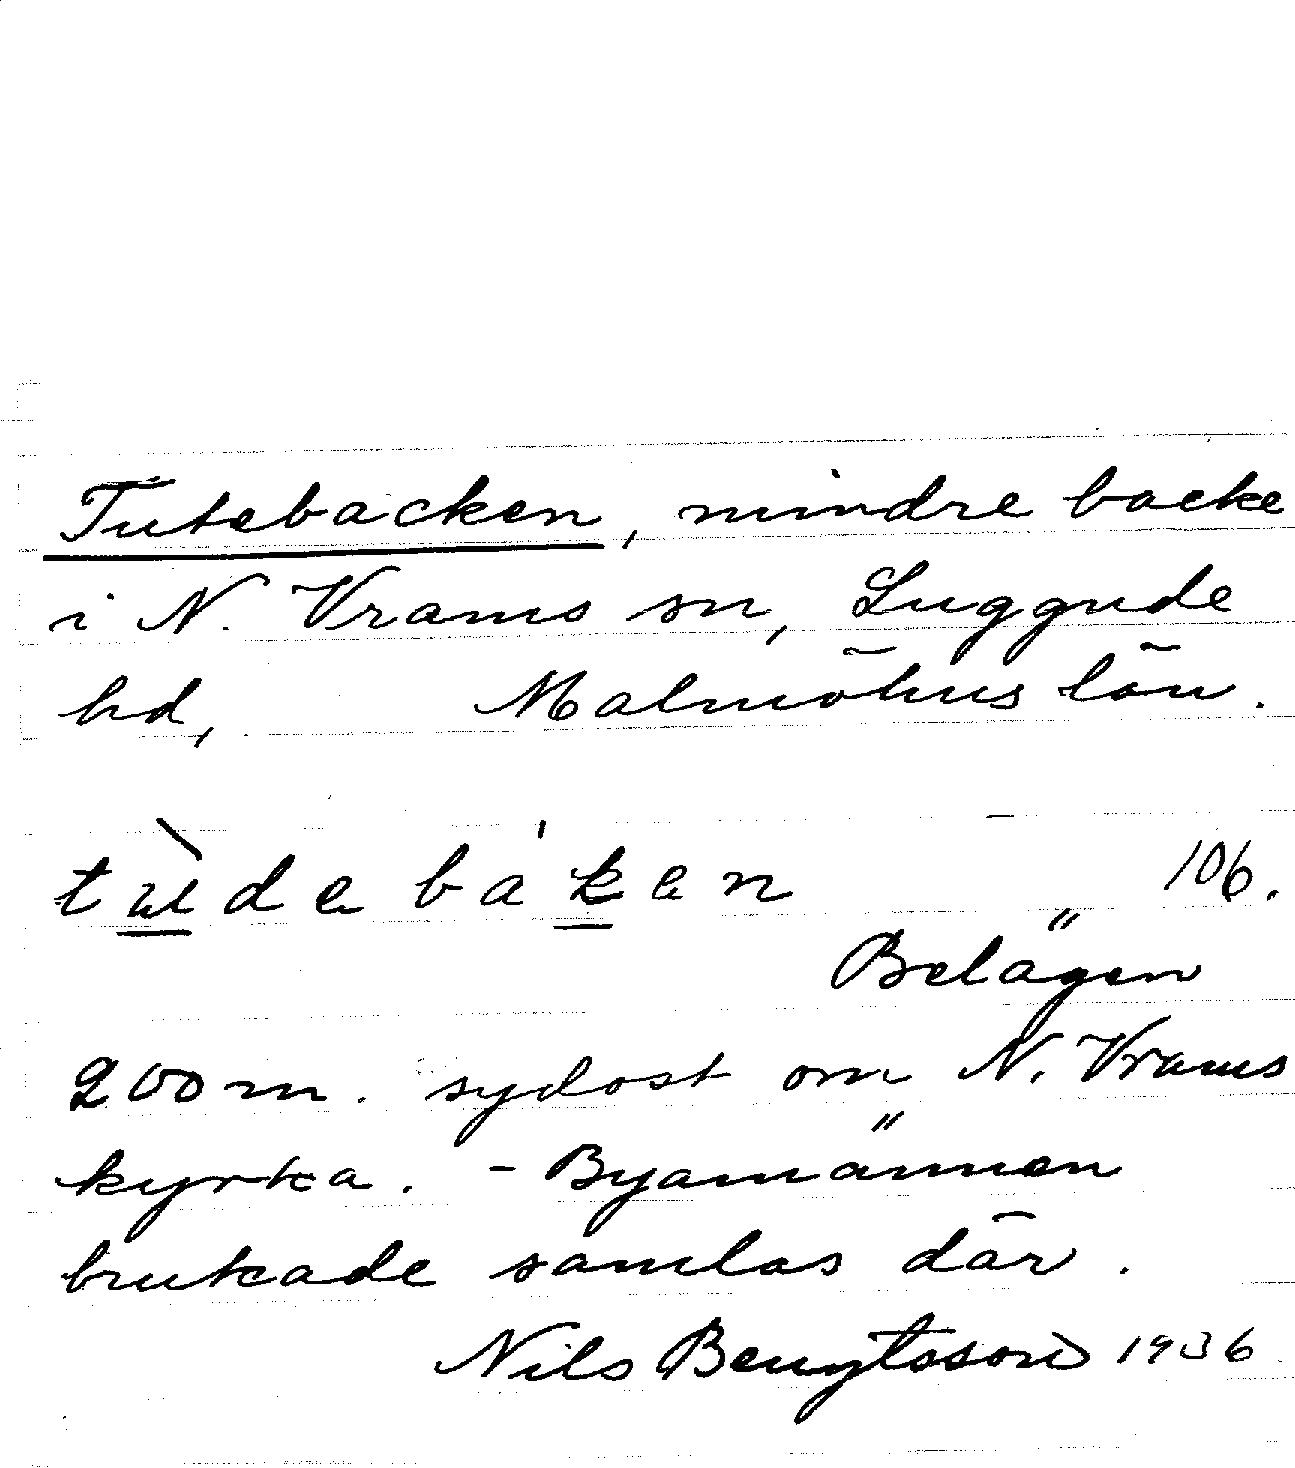 Tutebacken, mindre backe
i N. Vrams sn, Luggude
hd, Malmöhus län.
tùdebákən 106.
Belägen
200 m. sydost om N. Vrams
kyrka. - Byamännen
brukade samlas där.
Nils Bengtsson 1936